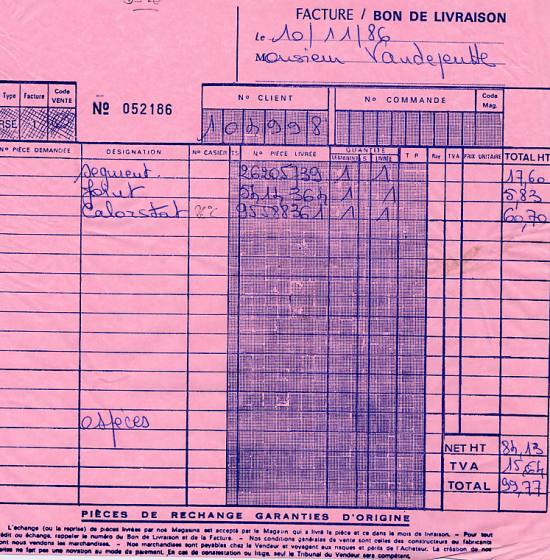 FACTURE / BON DE LIVRAISON
le 10/11/86
Monsieur Vandeputte
Type Facture Code VENTE
Nº 052186
Nº CLIENT
Nº COMMANDE
Code Mag.
104998
Nº PIÈCE DEMANDÉE DÉSIGNATION Nº CASIER TS Nº PIÈCE LIVRÉE QUANTITÉ LIVRÉE T P TVA PRIX UNITAIRE TOTAL HT
segment. 26205739 1 1 17,60
Joint 1 1 5,83
Calorstat 95588361 1 1 60,70
espèces
NET HT 84,13
TVA 15,64
TOTAL 99,77
PIÈCES DE RECHANGE GARANTIES D'ORIGINE
L'échange (ou la reprise) de pièces livrées par nos Magasins est accepté par le Magasin qui a livré la pièce et ce dans le mois de livraison. - Pour tout
édit ou échange, rappeler le numéro du Bon de Livraison et de la Facture. - Nos conditions générales de vente sont celles des constructeurs ou fabricants
ont nous vendons les marchandises. - Nos marchandises sont payables chez le Vendeur et voyagent aux risques et périls de l'Acheteur. La création de
ne fait pas une novation au mode de paiement. En cas de contestation ou litige, seul le Tribunal du Vendeur sera compétent.